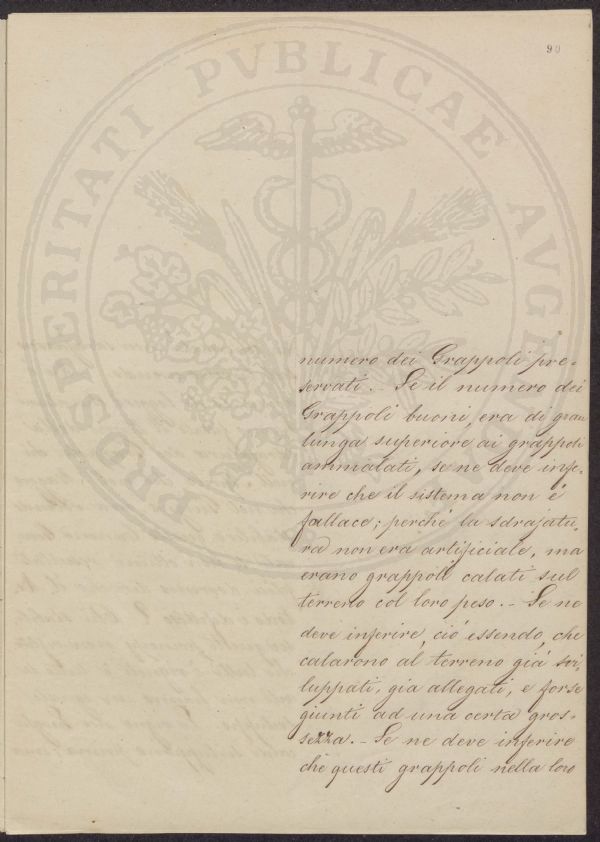 90
PROSPERITATI PVBLICAE AVGE
numero dei Grappoli pre-
servati. - Se il numero dei
Grappoli buoni, era di gran
lunga superiore ai grappoli
ammalati, se ne deve infe-
rire che il sistema non é
fallace; perché la sdrajatu-
ra non era artificiale, ma
erano grappoli calati sul
terreno col loro peso. - Se ne
deve inferire, ció essendo, che
calarono al terreno giá svi-
luppati, gia allegati, e forse
giunti ad una certa gros-
sezza. - Se ne deve inferire
che questi grappoli nella loro